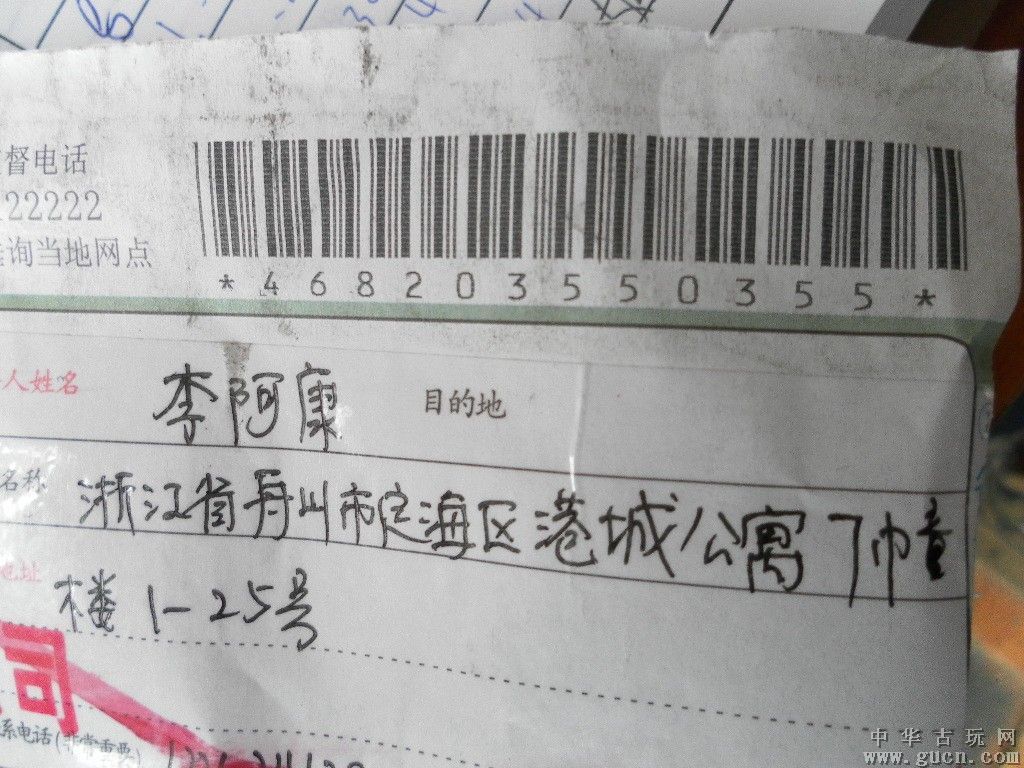 督电话
22222
询当地网点
*468203550355*
人姓名 李阿康 目的地
名称 浙江省舟山市定海区港城公寓7幢
地址 楼1-25号
司
系电话(非常重要)
中华古玩网
www.gucn.com